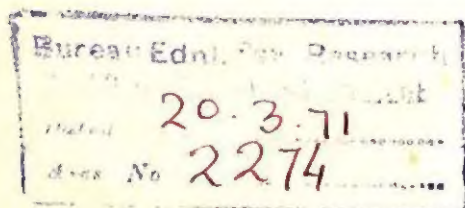 Bureau Ednl. Research
Dated 20.3.71
Accs No 2274